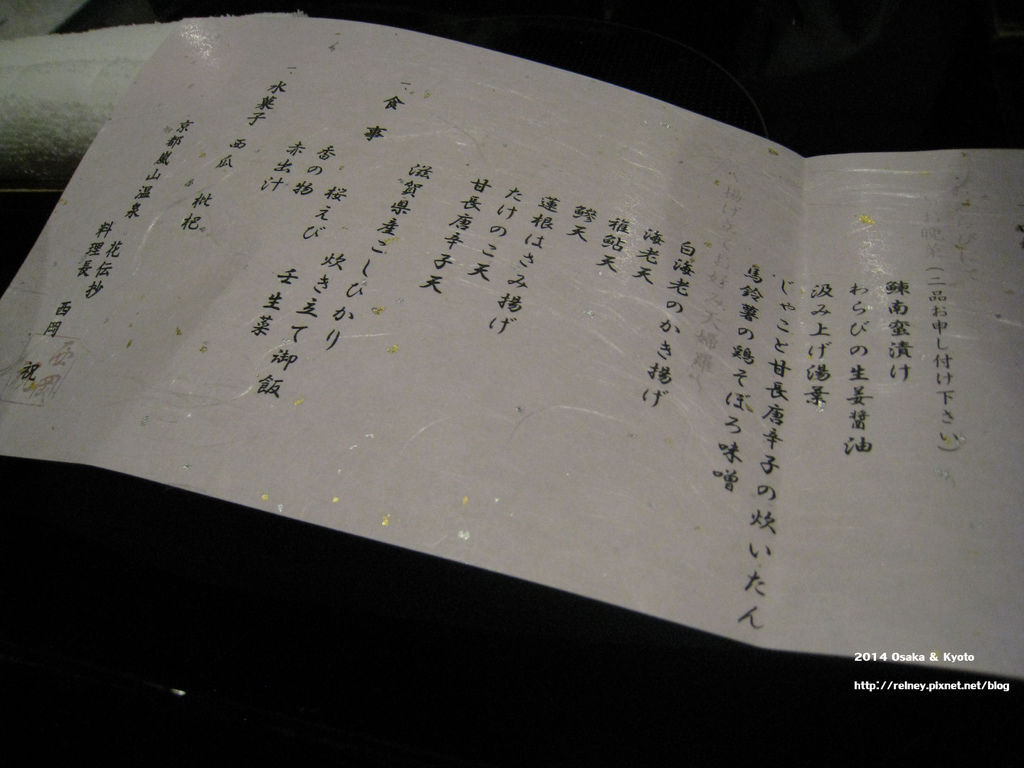 (二品お申し付け下さい)
鰊南蛮漬け
わらびの生姜醤油
汲み上げ湯葉
じゃこと甘長唐辛子の炊いたん
馬鈴薯の鶏そぼろ味噌
白海老のかき揚げ
海老天
稚鮎天
鱚天
蓮根はさみ揚げ
たけのこ天
甘長唐辛子天
一、食事
滋賀県産こしひかり
桜えび 炊き立て御飯
香の物 壬生菜
赤出汁
一、水菓子
西瓜 枇杷
京都嵐山温泉 花伝抄
料理長 西岡 祝
2014 Osaka & Kyoto
http://relney.pixnet.net/blog